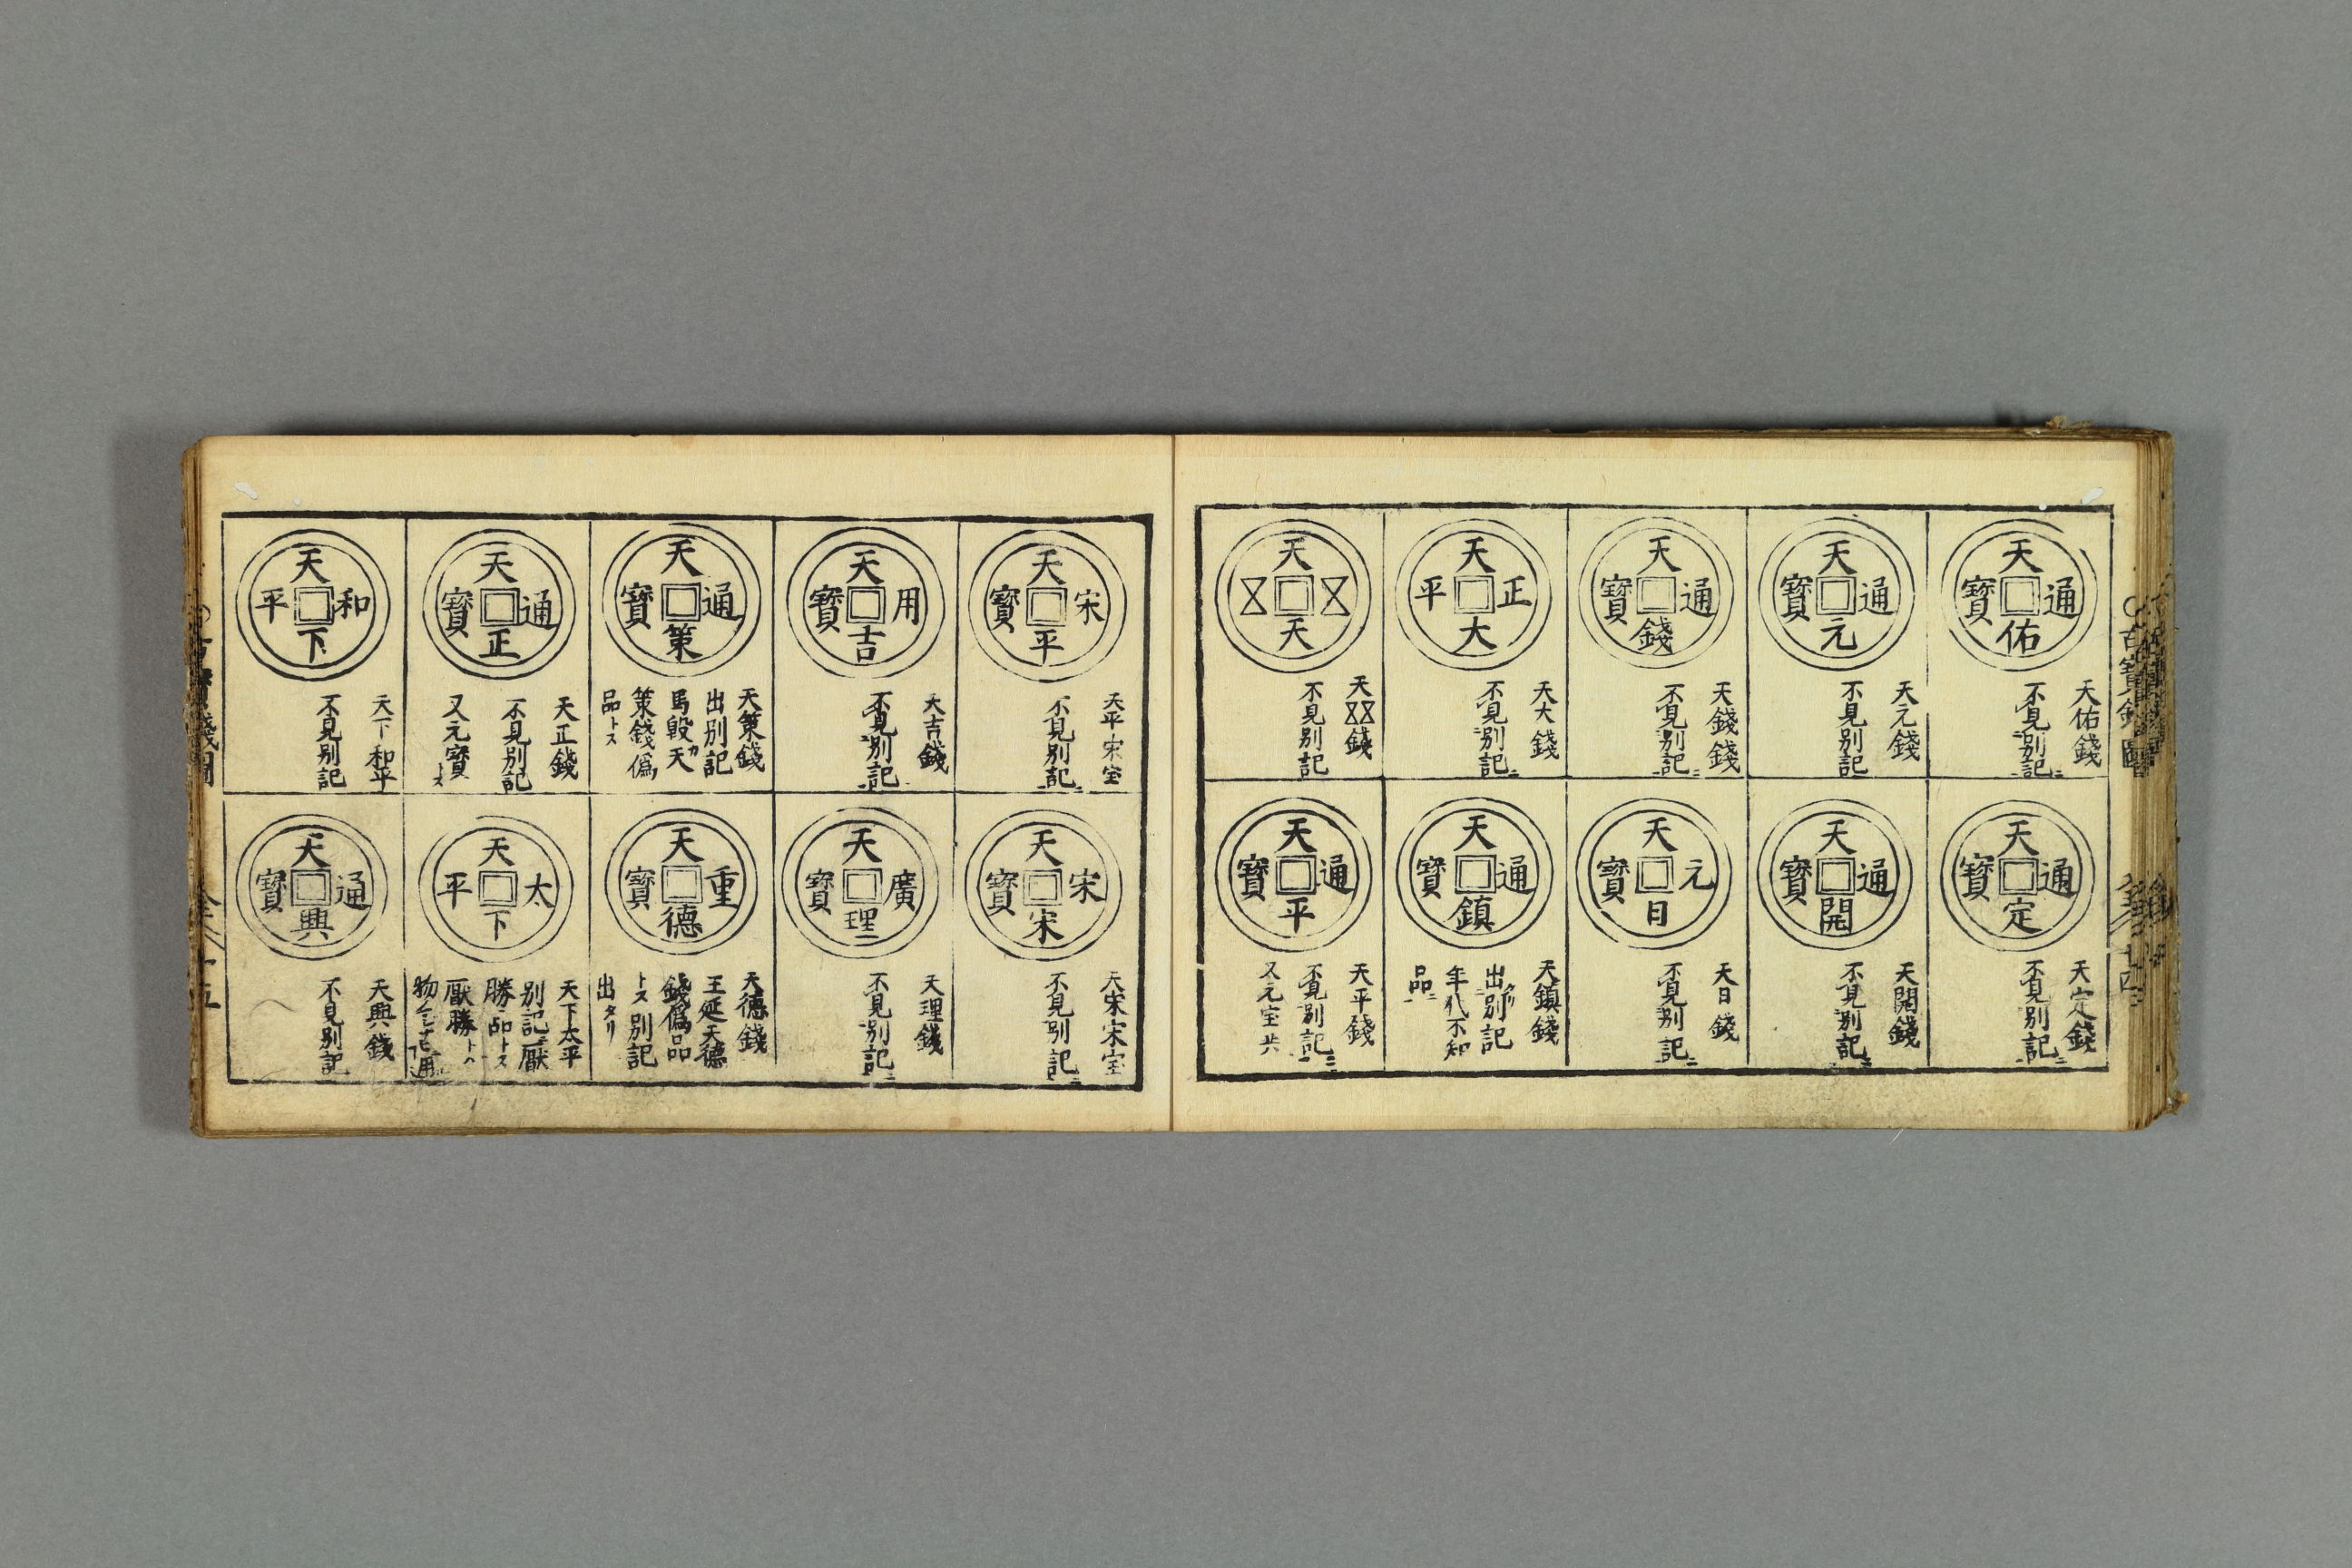 天佑通寶
天佑錢
不見別記ニ
天元通寶
天元錢
不見別記
天錢通寶
天錢錢
不見別記ニ
天大正平
天大錢
不見別記ニ
天天
天錢
不見別記
天定通寶
天定錢
不見別記ニ
天開通寶
天開錢
不見別記ニ
天日元寶
天日錢
不見別記ニ
天鎮通寶
天鎮錢
出別記ニ
年代不知
品ニ
天平通寶
天平錢
不見別記ニ
又元宝共
天平宋寶
天平宋宝
不見別記ニ
天吉用寶
天吉錢
不見別記ニ
天策通寶
天策錢
出別記
馬殷カ天
策錢偽
品トス
天正通寶
天正錢
不見別記
又元寶
天下和平
天下和平
不見別記
天宋宋寶
天宋宋宝
不見別記ニ
天理廣寶
天理錢
不見別記ニ
天德重寶
天德錢
王延天德
錢偽品
トス別記
出タリ
天下太平
天下太平
別記ニ厭
勝品トス
厭勝トハ
天興通寶
天興錢
不見別記